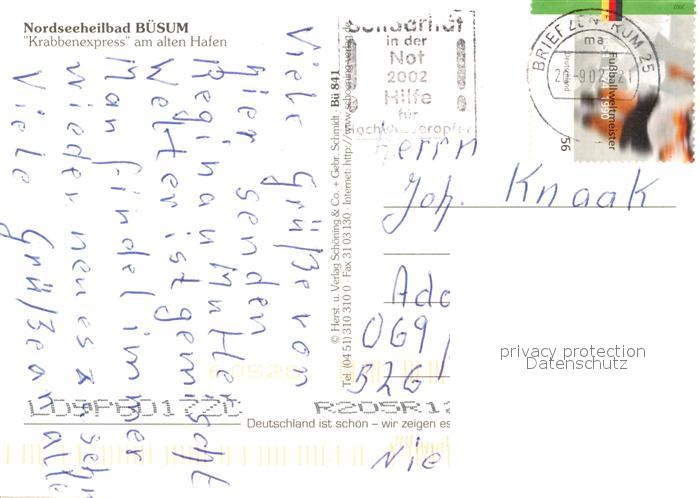 Nordseeheilbad BÜSUM
"Krabbenexpress" am alten Hafen
Viele Grüße von
hier senden
Regina u Mutter
Wetter ist gemischt
Man findet immer
wieder neues zu sehn
Viele Grüße an alle
© Herst. u. Verlag Schöning & Co. + Gebr. Schmidt · Bü 841
Tel. (04 51) 310 310 0 · Fax 31 03 130 · Internet: http://www.schoening-verlag.de
Solidarität
in der
Not
2002
Hilfe
für
Hochwasseropfer
BRIEFZENTRUM 25
ma
Deutschland
Fußballweltmeister
1990
56
Herrn
Joh. Knaak
069
526
Nie
privacy protection
Datenschutz
Deutschland ist schön – wir zeigen es